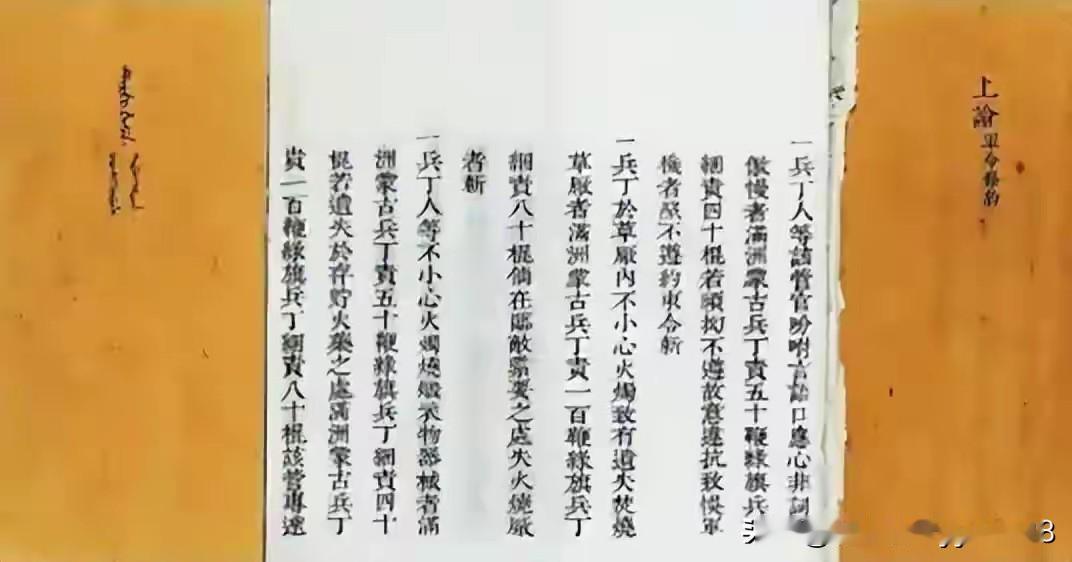 上諭軍令條約
一兵丁人等該管官吩咐言語口應心非詞
傲慢者滿洲蒙古兵丁責五十鞭綠旗兵
綑責四十棍若頑拗不遵故意違抗致悞軍
機者照不遵約束令斬
一兵丁於草廠內不小心火燭致有遺失焚燒
草廠者滿洲蒙古兵丁責一百鞭綠旗兵丁
綑責八十棍倘在臨敵緊要之處失火燒廠
者斬
一兵丁人等不小心火燭燒燬衣物器械者滿
洲蒙古兵丁責五十鞭綠旗兵丁綑責四十
棍若遺失於存貯火藥之處滿洲蒙古兵丁
責一百鞭綠旗兵丁綑責八十棍該營專逹